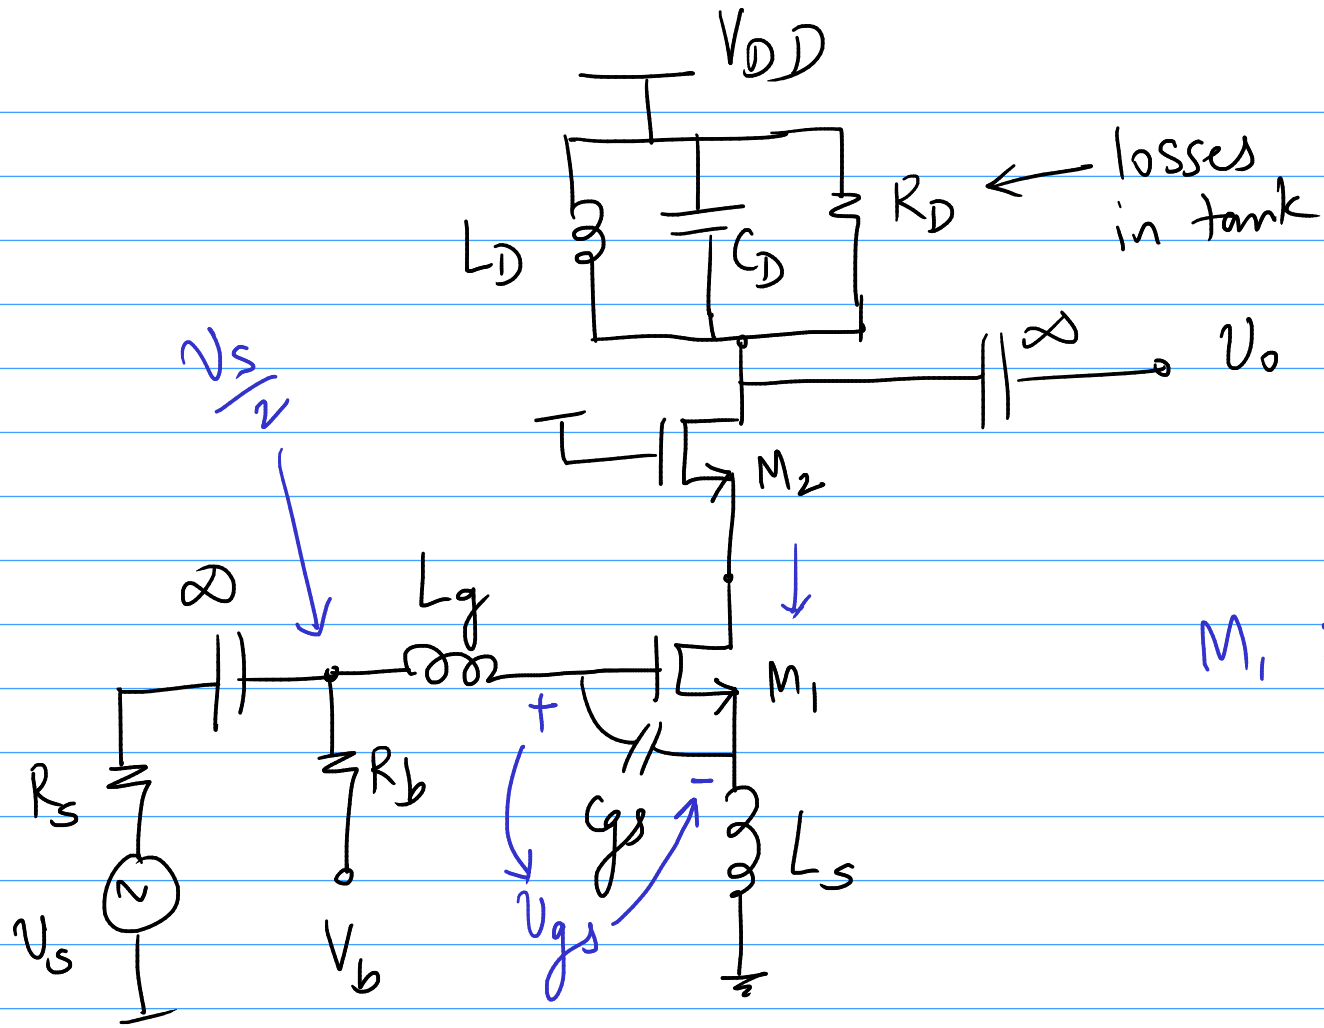 VDD
losses
in tank
RD
LD
CD
∞
Vo
Vs/2
M2
∞
Lg
M1
M1
+
-
Rs
Rb
Cgs
Ls
Vgs
Vs
Vb